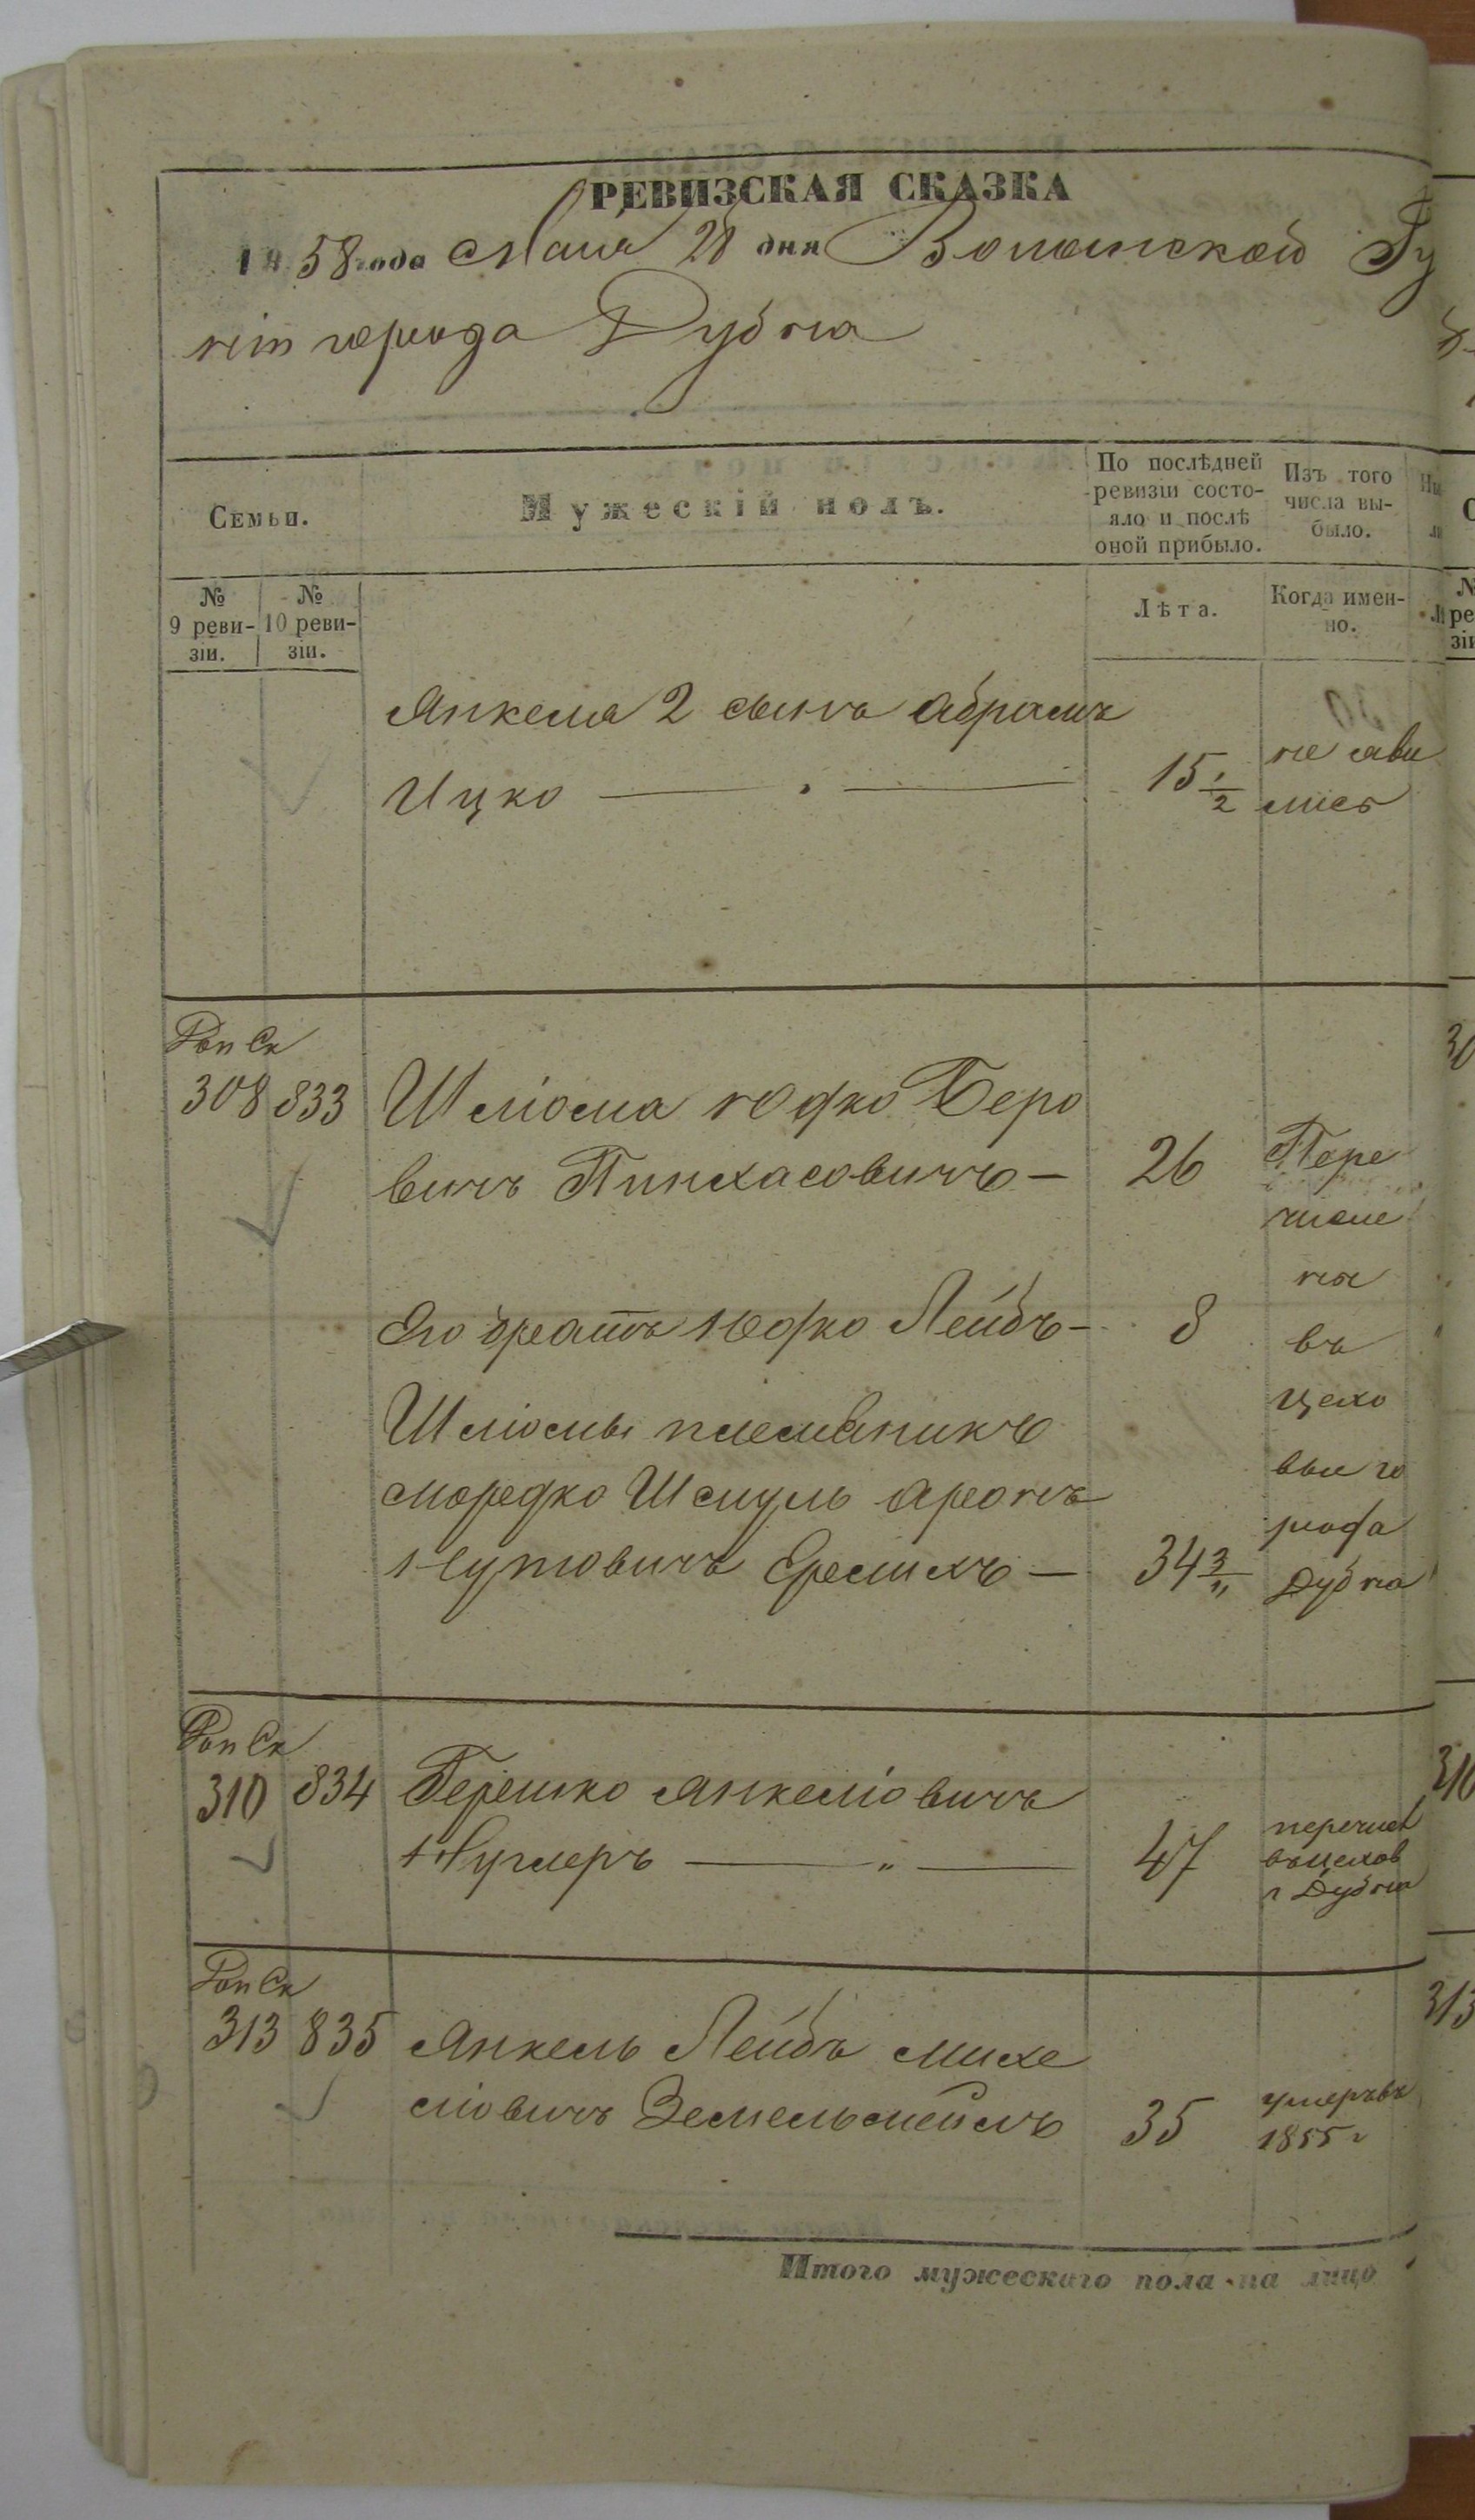 РЕВИЗСКАЯ СКАЗКА
1858 года Мая 28 дня Волынской Гу
ніи города Дубна
Семьи.
Мужескій полъ.
По послѣдней ревизіи состояло и послѣ оной прибыло.
Изъ того числа выбыло.
№ 9 ревизіи.
№ 10 ревизіи.
Лѣта.
Когда именно.
Янкеля 2 сынъ Абрамъ
Ицко — 15 1/2 не яви
лись
308 833 Шліома Юдко Беро
вичъ Пинхасовичъ — 26 Пере
числе
ны
Его братъ Юдко Лейбъ — 8 въ
цехо
Шліомы племѣникъ
вые го
Мордко Шмуль Аронъ
рода
Нутовичъ — 34 3/11 Дубна
310 834 Гершко Янкеліовичъ
перечисл
— 47 въ цехов
г Дубна
313 835 Янкель Лейбъ Михе
ліовичъ Земельмейлъ 35 умеръ въ
1855 г
Итого мужескаго пола на лицо